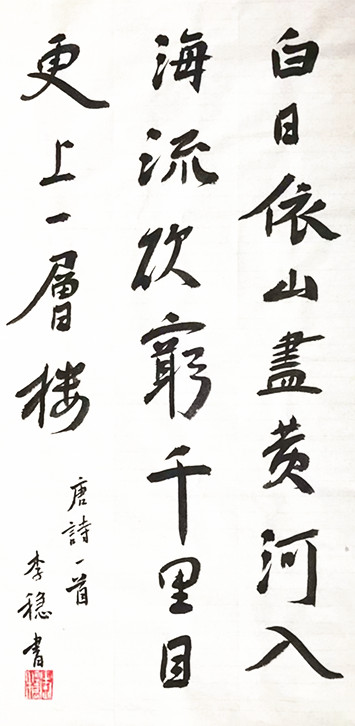 白日依山盡黄河入
海流欲窮千里目
更上一層楼
唐詩一首
李稳書